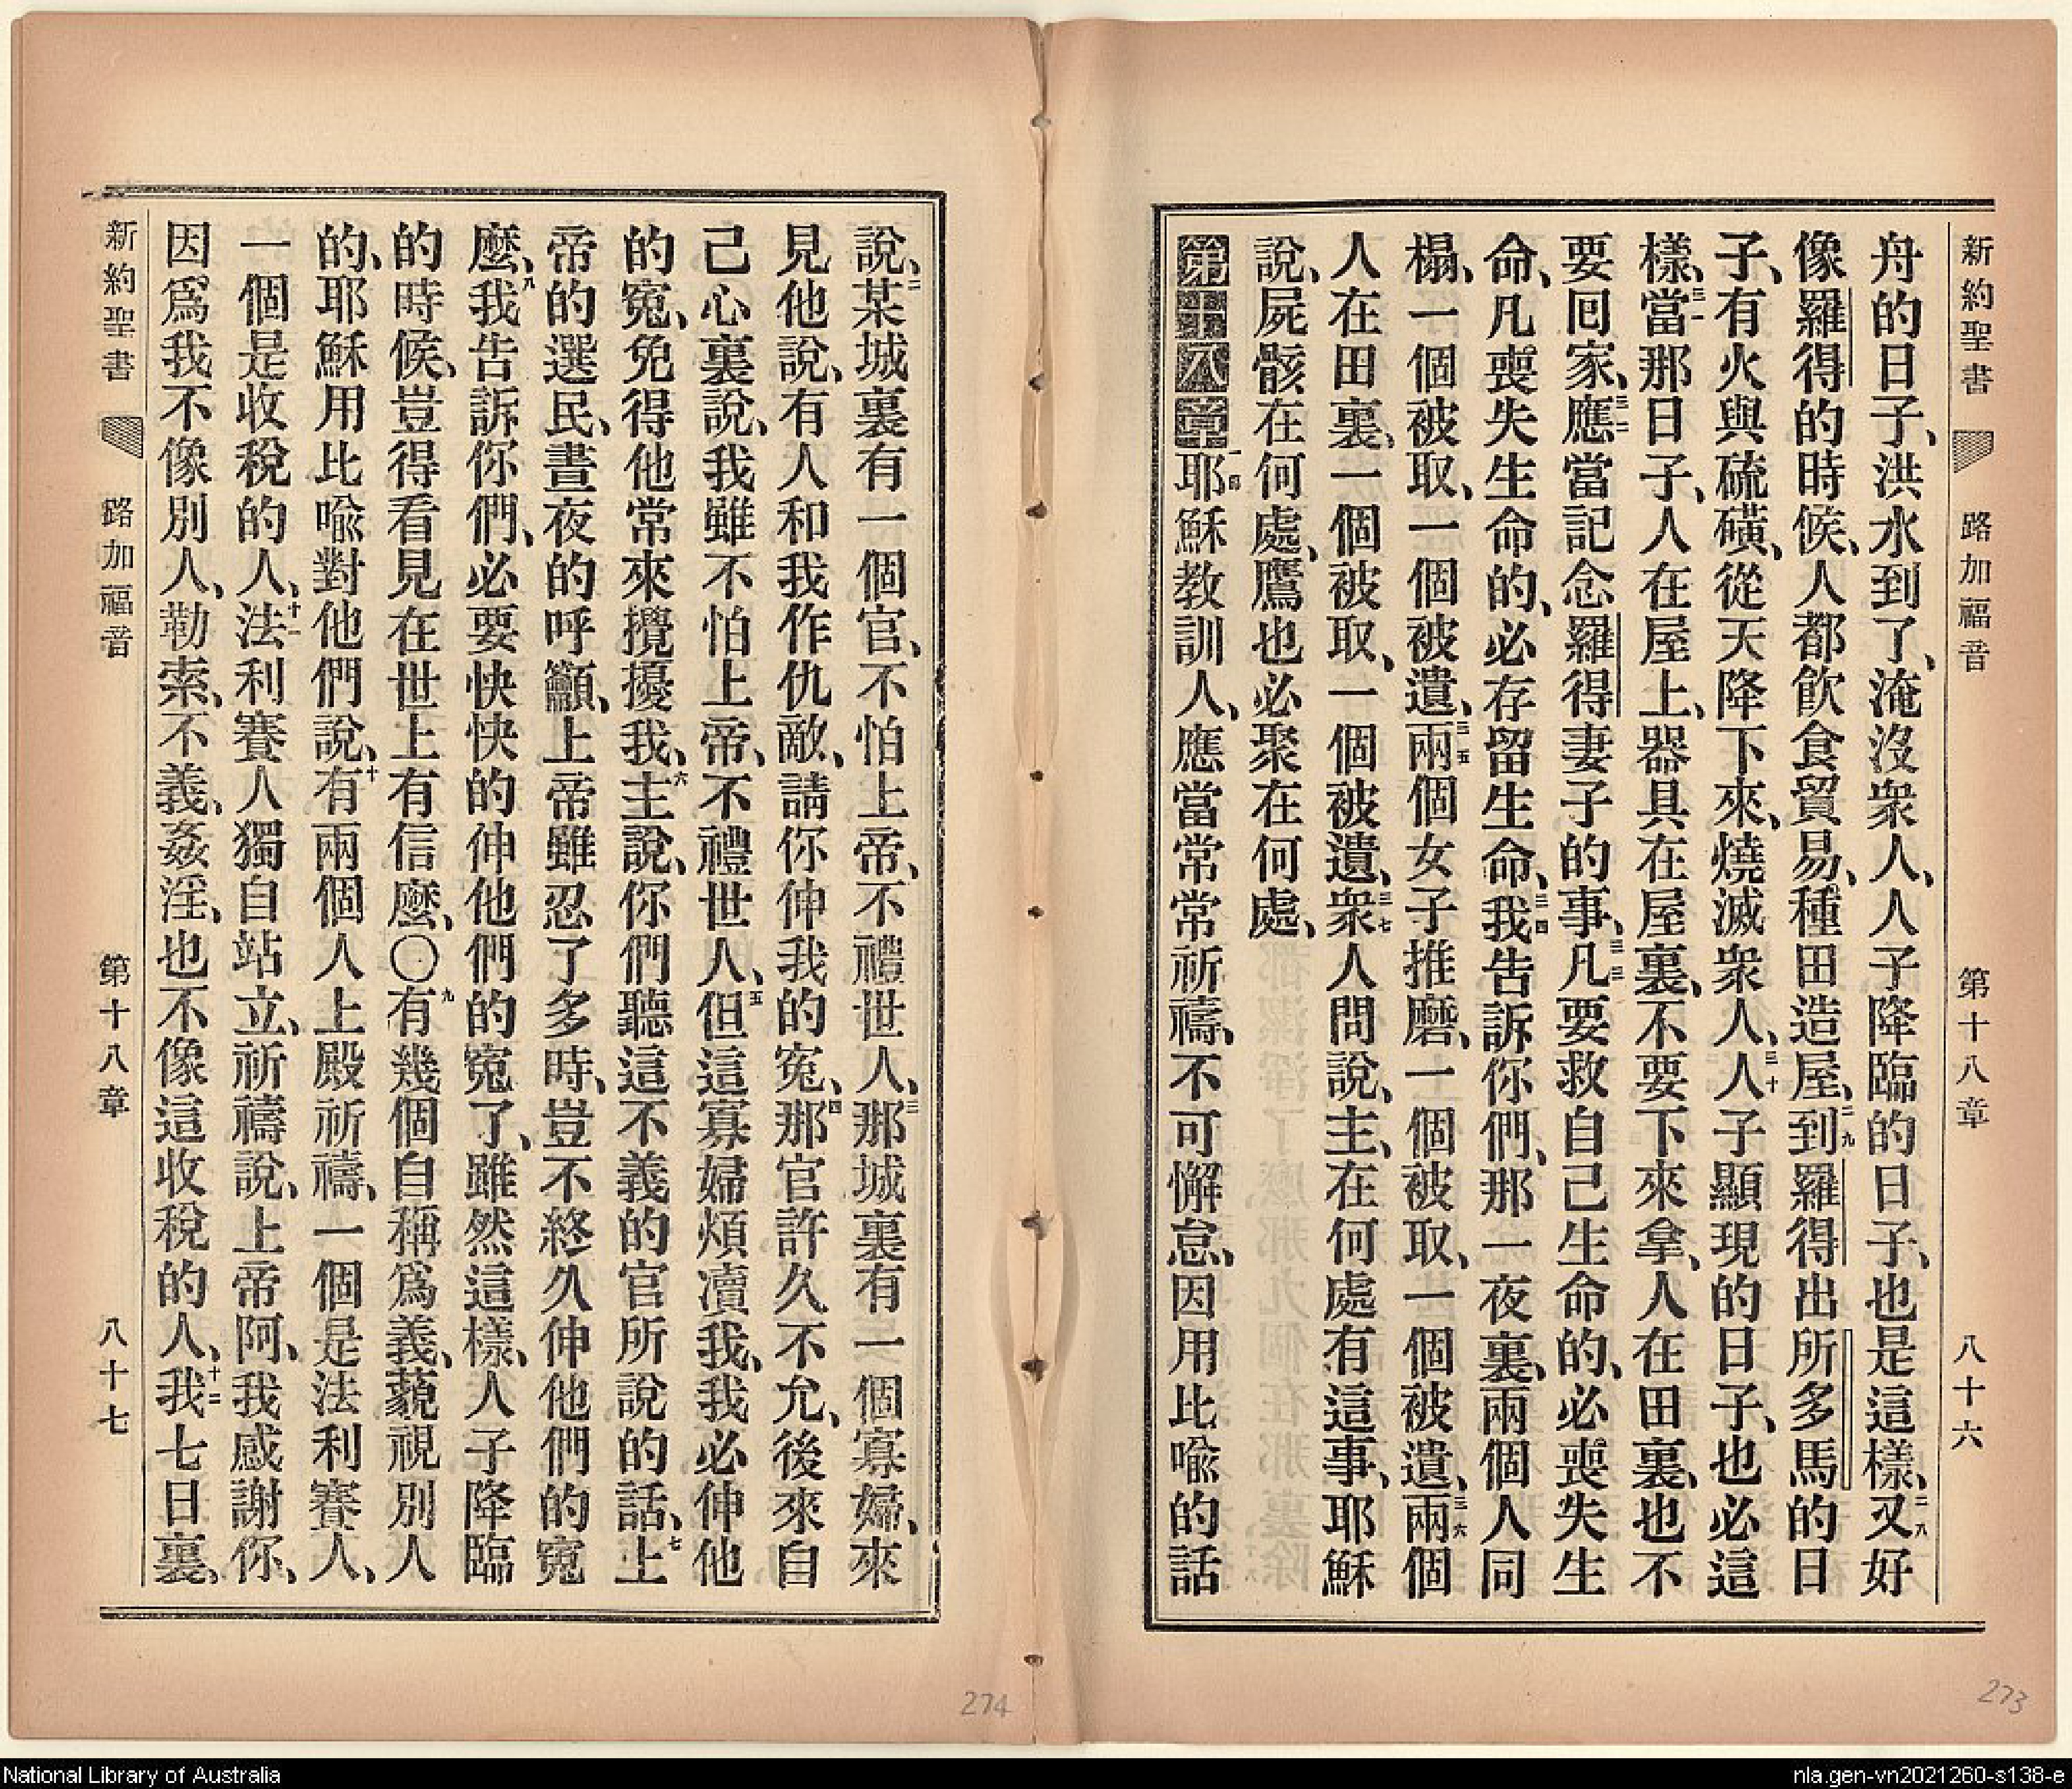 新約聖書 路加福音 第十八章 八十六
舟的日子、洪水到了、淹沒衆人、人子降臨的日子、也是這樣、二八又好
像羅得的時候、人都飲食貿易、種田造屋、二九到羅得出所多馬的日
子、有火與硫磺、從天降下來、燒滅衆人、三十人子顯現的日子、也必這
樣、三一當那日子、人在屋上、器具在屋裏、不要下來拿、人在田裏、也不
要囘家、三二應當記念羅得妻子的事、三三凡要救自己生命的、必喪失生
命、凡喪失生命的、必存留生命、三四我告訴你們、那一夜裏、兩個人同
榻、一個被取、一個被遺、三五兩個女子推磨、一個被取、一個被遺、三六兩個
人在田裏、一個被取、一個被遺、三七衆人問說、主、在何處有這事、耶穌
說、屍骸在何處、鷹也必聚在何處、
第十八章 一耶穌教訓人、應當常常祈禱、不可懈怠、因用比喩的話
說、二某城裏有一個官、不怕上帝、不禮世人、三那城裏有一個寡婦、來
見他說、有人和我作仇敵、請你伸我的寃、四那官許久不允、後來自
己心裏說、我雖不怕上帝、不禮世人、五但這寡婦煩瀆我、我必伸他
的寃、免得他常來攪擾我、六主說、你們聽這不義的官所說的話、七上
帝的選民、晝夜的呼籲、上帝雖忍了多時、豈不終久伸他們的寃
麼、八我告訴你們、必要快快的伸他們的寃了、雖然這樣、人子降臨
的時候、豈得看見在世上有信麼、〇九有幾個自稱爲義、藐視別人
的、耶穌用比喩對他們說、十有兩個人上殿祈禱、一個是法利賽人、
一個是收稅的人、十一法利賽人獨自站立、祈禱說、上帝阿、我感謝你、
因爲我不像別人、勒索、不義、姦淫、也不像這收稅的人、十二我七日裏、
新約聖書 路加福音 第十八章 八十七
273
274
National Library of Australia
nla.gen-vn2021260-s138-e